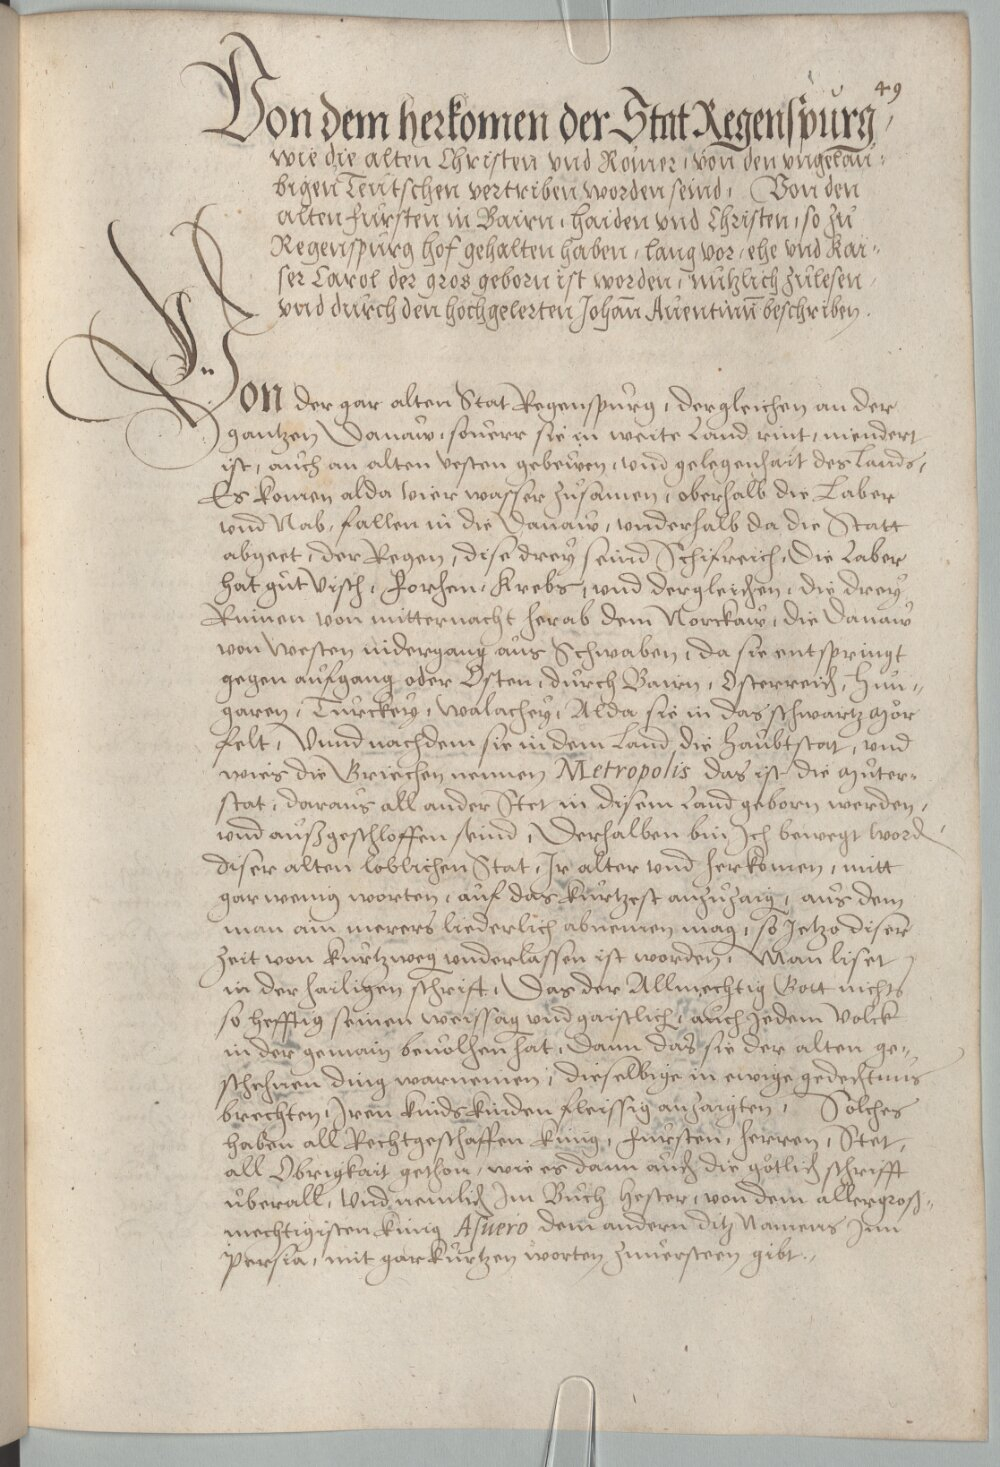 49
Von dem herkomen der Stat Regenspurg,
wie die alten Christen vnd Römer, von den vngelau-
bigen Teutschen vertriben worden seind, Von den
alten Fürsten in Bairn, haiden vnd Christen, so zu
Regenspurg hof gehalten haben, lang vor, ehe vnd Kai-
ser Carol der gros geborn ist worden, nutzlich zulesen,
vnd durch den hochgelerten Johan̄ Auentinn̄ beschriben.
Von der gar alten Stat Regenspurg, dergleichen an der
gantzen Danaw, souerr sie in weite Land rint, niendert
ist, auch an alten vesten gebewen, vnd gelegenhait des Lands,
Es komen alda vier wasser zusamen, oberhalb die Laber
vnd Nab, fallen in die Danaw, vnderhalb da die Statt
abgeet, der Regen, dise drey seind Schifreich, Die Laber
hat gut Visch, Forhen, Krebs, vnd dergleichen, die drey
Rinnen von mitternacht herab dem Norckaw, die Danaw
von Westen nidergang aus Schwaben, da sie entspringt
gegen aufgang oder Osten, durch Bairn, Osterreich, Hun-
garen, Turckey, Walachey, Alda sie in das schwartz Mör
felt, Vnnd nachdem sie in dem Land die haubtstat, vnd
wies die Griechen nennen Metropolis das ist die Muter-
stat, daraus all ander Stet in disem Land geborn werden,
vnd außgeschloffen seind, Derhalben bin Ich bewegt word
diser alten loblichen Stat, Ir alter vnd herkomen, mitt
gar wenig worten, auf das kurtzest anzuzaig, aus dem
man ain merers liederlich abnemen mag, so Jetzo diser
Zeit von kurtzweg vnderlassen ist worden, Man liset
in der hailigen schrift, Das der Allmechtig Gott nichts
so hefftig seinen weissag vnd gaistlich, auch Jedem Volck
in der gemain beuolhen hat, Dann das sie der alten ge-
schehnen ding warnemen, dieselbige in ewige gedechtnus
brechten, Jren kinds kinden fleissig anzaigten, Solches
haben all Rechtgeschaffen king, Fursten, Herren, Stet,
all Obrigkait gethon, wie es dann auch die götlich schrifft
uberall, vnd nemlich Im Buch Hester, von dem allergroß-
mechtigisten king Asuero dem andern ditz Namens Inn
Persia, mit gar kurtzen worten zuuersteen gibt.